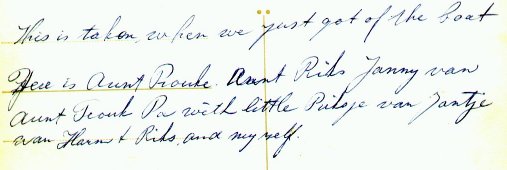 This is taken, when we just got of the boat
Here is Aunt Aunt Riks Janny van
Aunt Pa with little van Jantje
van Harm + Riks, and myself.